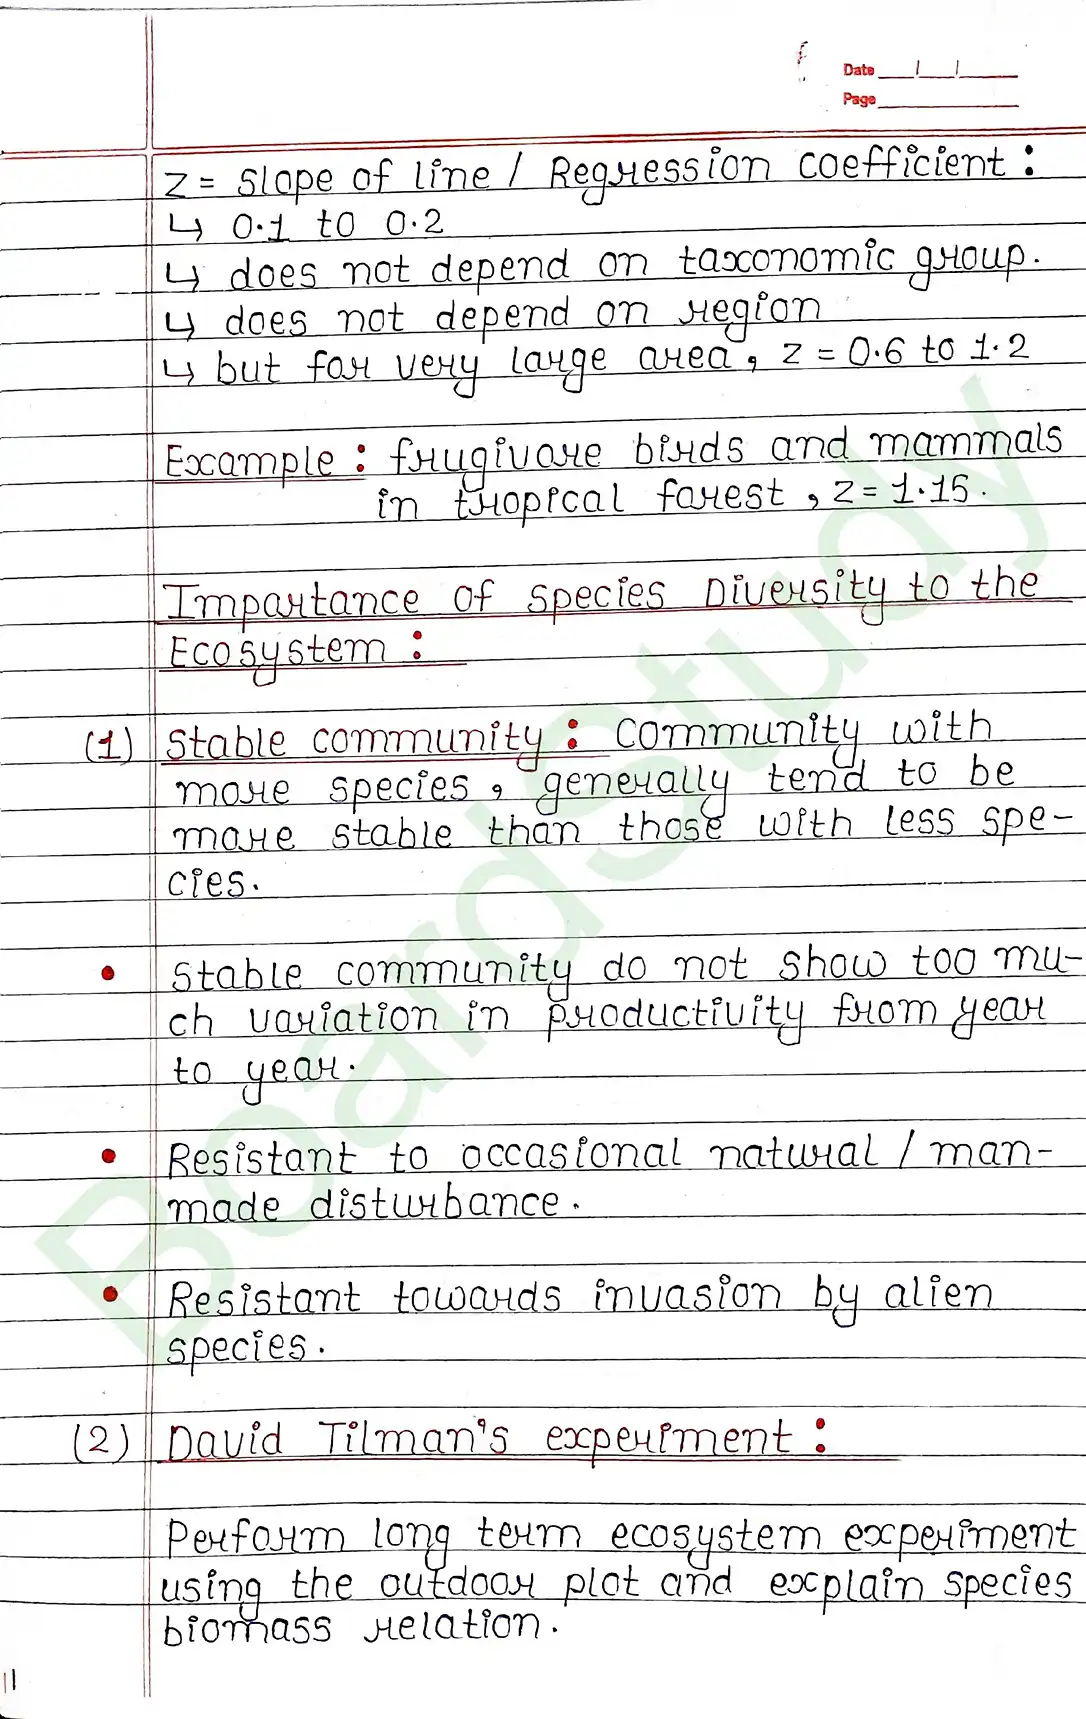 Date __/__/__
Page
Z = Slope of line / Regression coefficient :
↳ 0.1 to 0.2
↳ does not depend on taxonomic group.
↳ does not depend on region
↳ but for very large area, Z = 0.6 to 1.2
Example : frugivore birds and mammals
in tropical forest, Z = 1.15.
Importance of Species Diversity to the
Ecosystem :
(1) Stable community : Community with
more species, generally tend to be
more stable than those with less spe-
cies.
• Stable community do not show too mu-
ch variation in productivity from year
to year.
• Resistant to occasional natural / man-
made disturbance.
• Resistant towards invasion by alien
species.
(2) David Tilman's experiment :
Perform long term ecosystem experiment
using the outdoor plot and explain species
biomass relation.
BoardStudy